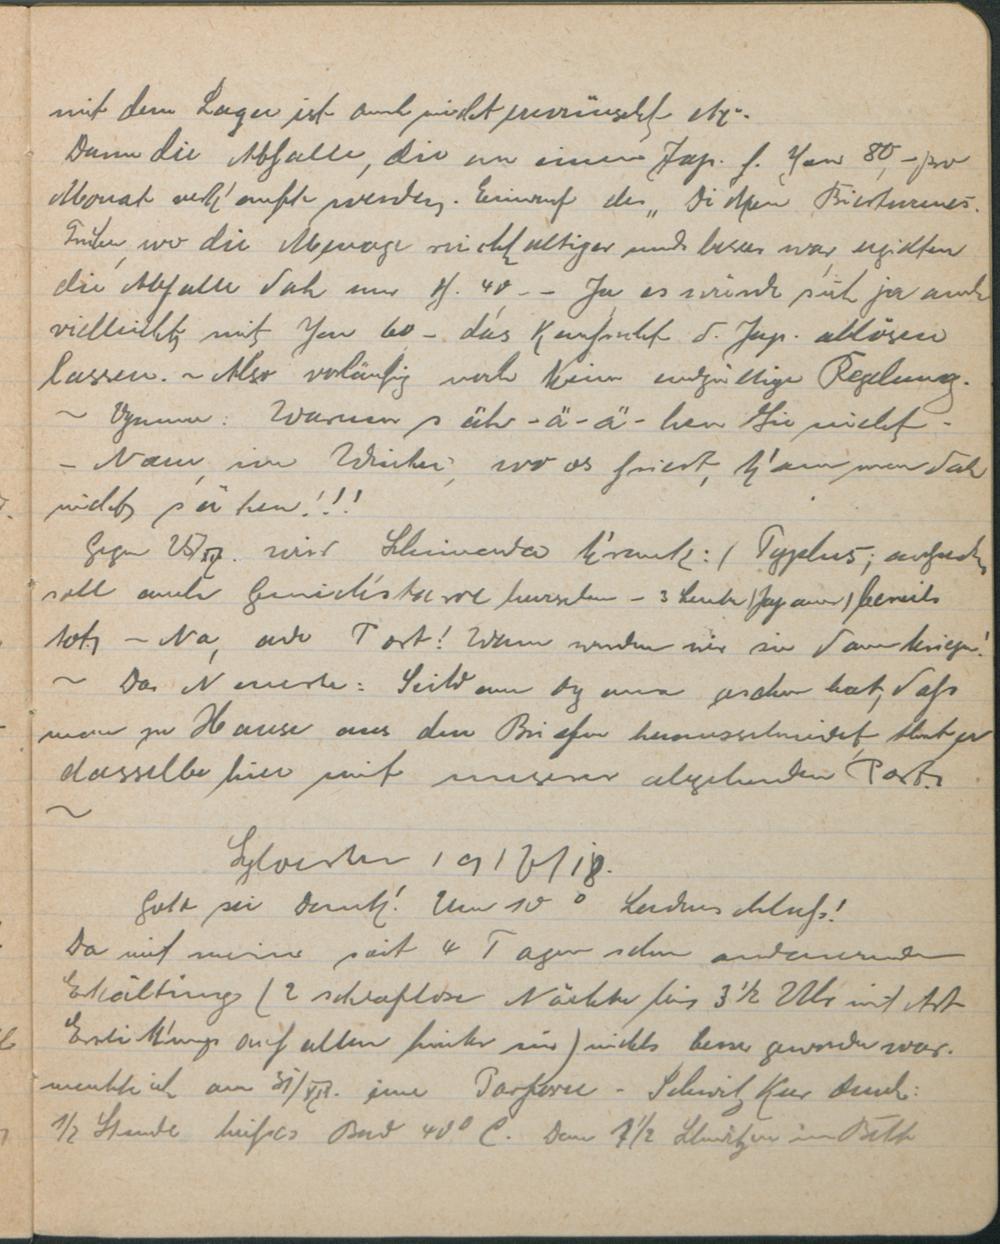 mit dem Lager ist auch nicht erwünscht etz.
Dann die Abfälle, die an einen Jap. f. Yen 80,- pro
Monat verkauft werden. Einwurf des „Dicken Bierturmes".
Früher, wo die Menage reichhaltiger und besser war, erzielten
die Abfälle doch nur Y. 40.- - Ja es würde sich ja auch
vielleicht mit Yen 60 - das d. Jap. ablösen
lassen. ~ Also vorläufig noch keine endgültige Regelung.
~ : Warum s äh - ä - ä - hen Sie nicht -
- Nanu, im Winter, wo es friert, kann man doch
nicht sähen!!!
Gegen 25/XII. wird krank: (Typhus; außerdem
soll auch Genickstarre herrschen - 3 Leute (Japaner) bereits
tot) - Na, ade Post! Wann werden wir sie dann kriegen!
~ Das Neueste: Seitdem gesehen hat, daß
man zu Hause aus den Briefen herausschneidet, thut er
dasselbe hier mit unserer abgehenden Post.
~
Sylvester 1917/18.
Gott sei Dank! Um 10° Ladenschluß!
Da mit meiner seit 4 Tagen schon andauernden
Erkältung (2 schlaflose Nächte bis 3½ Uhr mit Art
Erstickungsanfällen hinter mir) nichts besser geworden war,
machte ich am 31/XII. eine Parforce - Schwitz Kur durch:
1/2 Stunde heißes Bad 40° C. Dann 1/2 Schwitzen im Bett